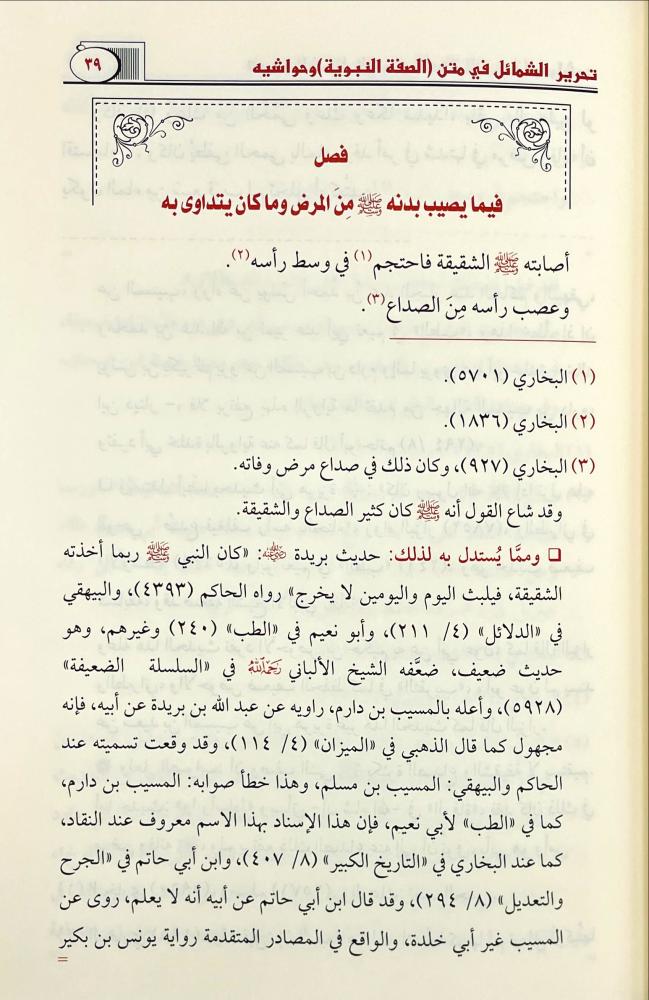 تحرير الشمائل في متن (الصفة النبوية) وحواشيه
٣٩
فصل
فيما يصيب بدنه ﷺ مِنَ المرض وما كان يتداوى به
أصابته ﷺ الشقيقة فاحتجم(١) في وسط رأسه(٢).
وعصب رأسه مِنَ الصداع(٣).
(١) البخاري (٥٧٠١).
(٢) البخاري (١٨٣٦).
(٣) البخاري (٩٢٧)، وكان ذلك في صداع مرض وفاته.
وقد شاع القول أنه ﷺ كان كثير الصداع والشقيقة.
❑ وممَّا يُستدل به لذلك: حديث بريدة رضي الله عنه: «كان النبي ﷺ ربما أخذته
الشقيقة، فيلبث اليوم واليومين لا يخرج» رواه الحاكم (٤٣٩٣)، والبيهقي
في «الدلائل» (٤/ ٢١١)، وأبو نعيم في «الطب» (٢٤٠) وغيرهم، وهو
حديث ضعيف، ضعَّفه الشيخ الألباني رَحِمَهُ اللَّهُ في «السلسلة الضعيفة»
(٥٩٢٨)، وأعله بالمسيب بن دارم، راويه عن عبد الله بن بريدة عن أبيه، فإنه
مجهول كما قال الذهبي في «الميزان» (٤/ ١١٤)، وقد وقعت تسميته عند
الحاكم والبيهقي: المسيب بن مسلم، وهذا خطأ صوابه: المسيب بن دارم،
كما في «الطب» لأبي نعيم، فإن هذا الإسناد بهذا الاسم معروف عند النقاد،
كما عند البخاري في «التاريخ الكبير» (٨/ ٤٠٧)، وابن أبي حاتم في «الجرح
والتعديل» (٨/ ٢٩٤)، وقد قال ابن أبي حاتم عن أبيه أنه لا يعلم، روى عن
المسيب غير أبي خلدة، والواقع في المصادر المتقدمة رواية يونس بن بكير
=